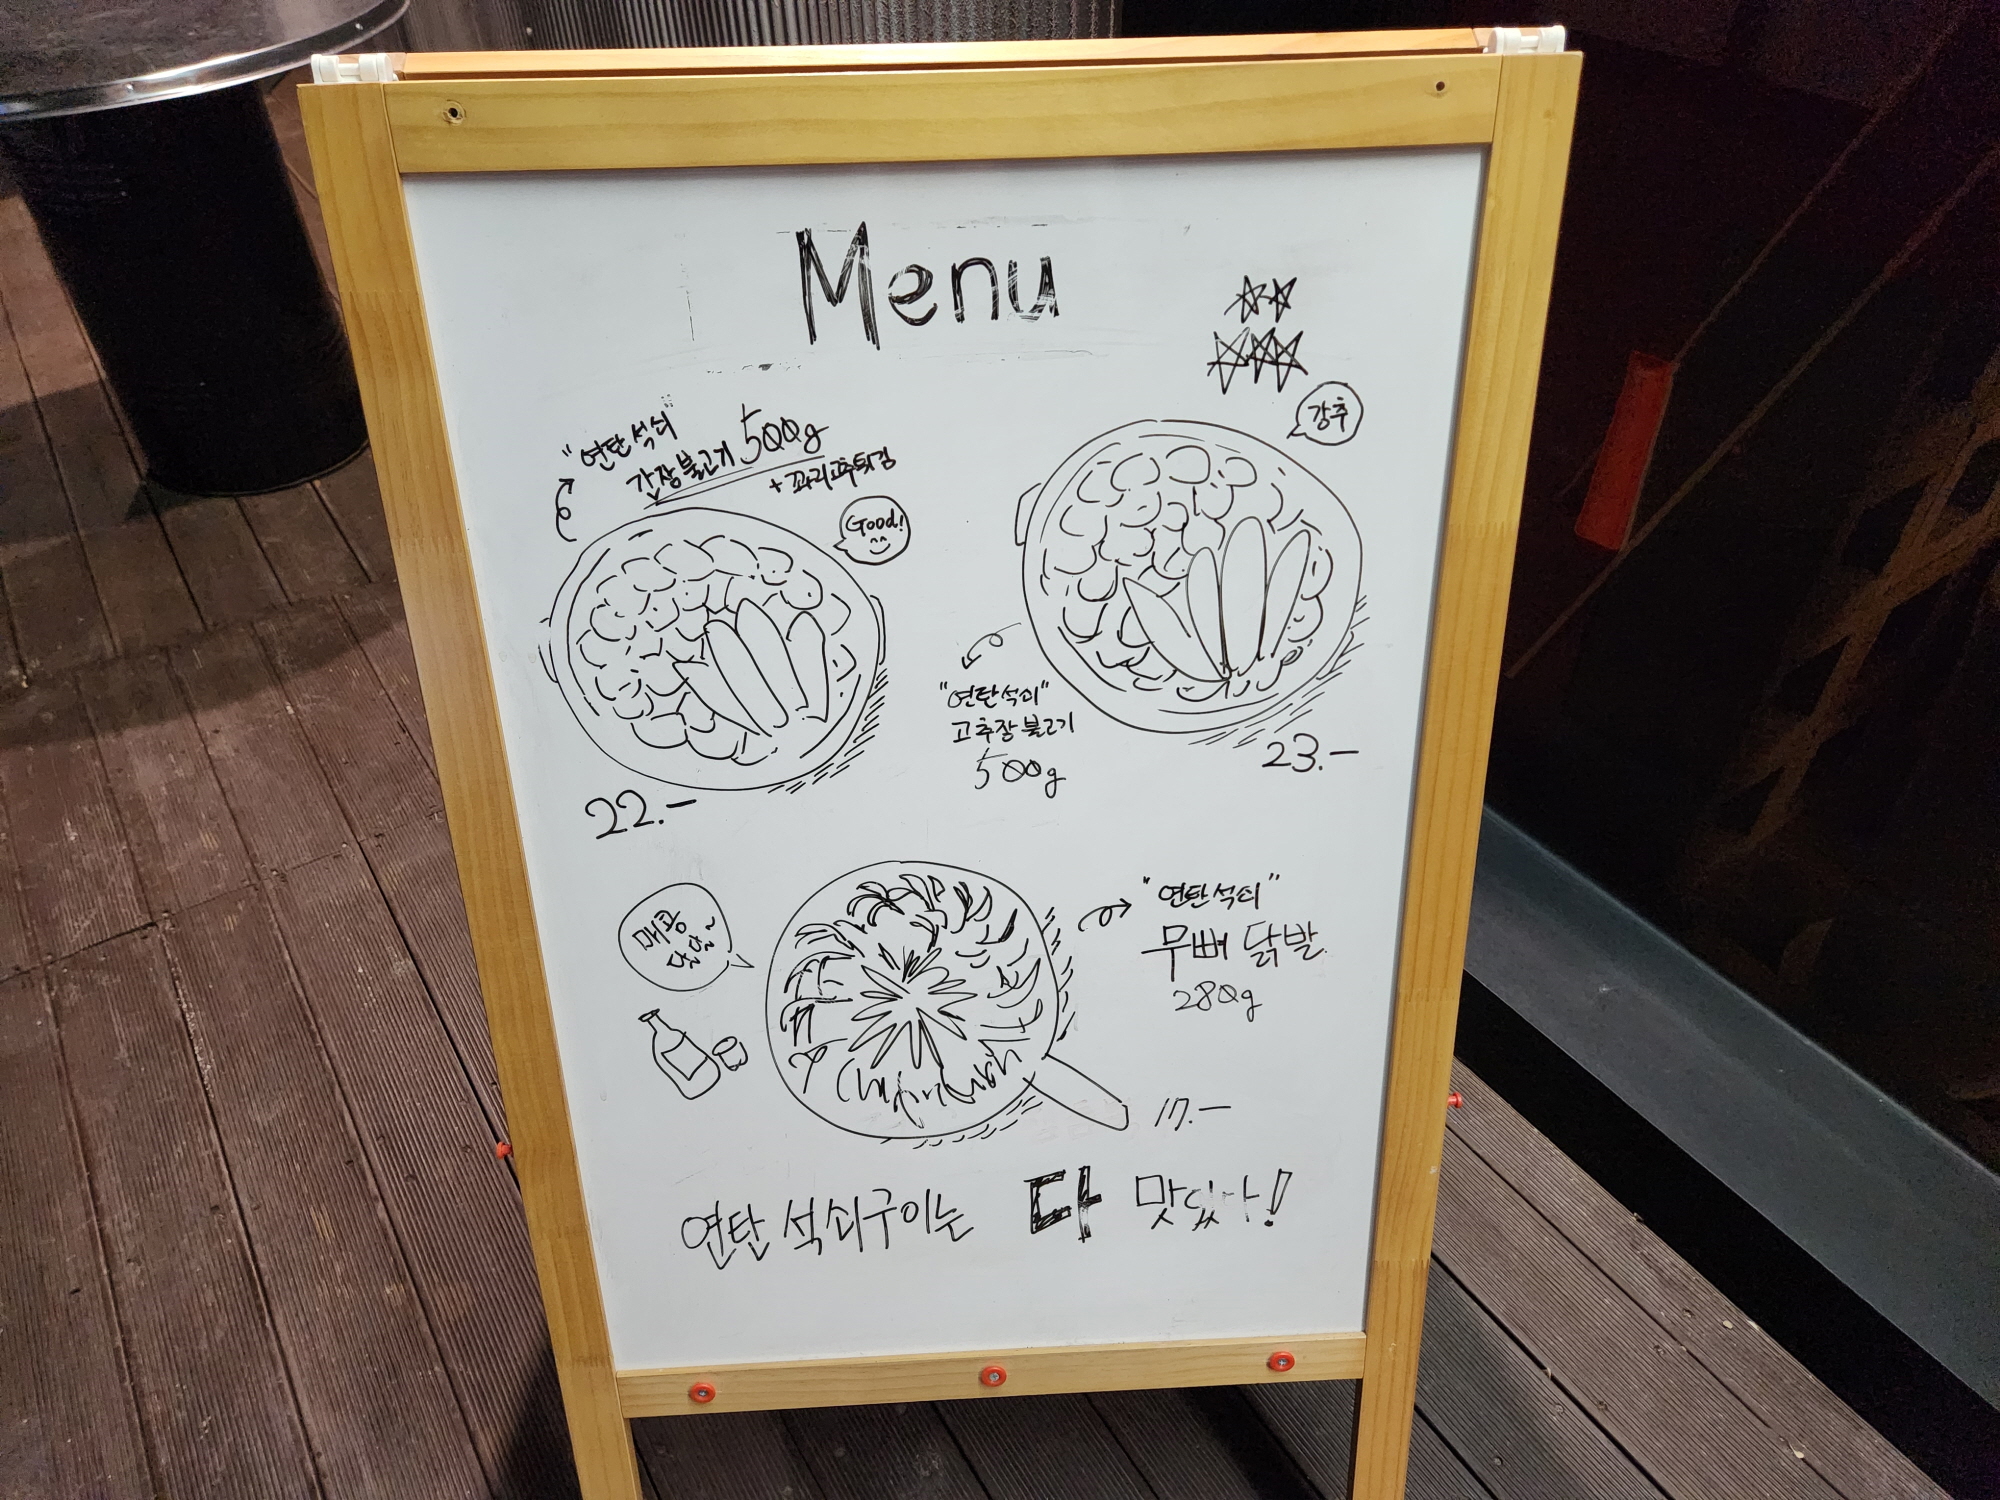 Menu
"연탄석쇠"
간장불고기 500g
+ 꽈리고추튀김
Good!
22.-
강추
"연탄석쇠"
고추장불고기
500g
23.-
매콤
"연탄석쇠"
무뼈 닭발
280g
17.-
연탄 석쇠구이는 다 맛있다!